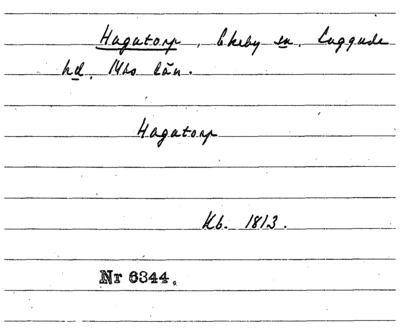 Hagatorp, Ekeby sn. Luggude
hd. Mhs län.
Hagatorp
Kb. 1813.
Nr 6344.